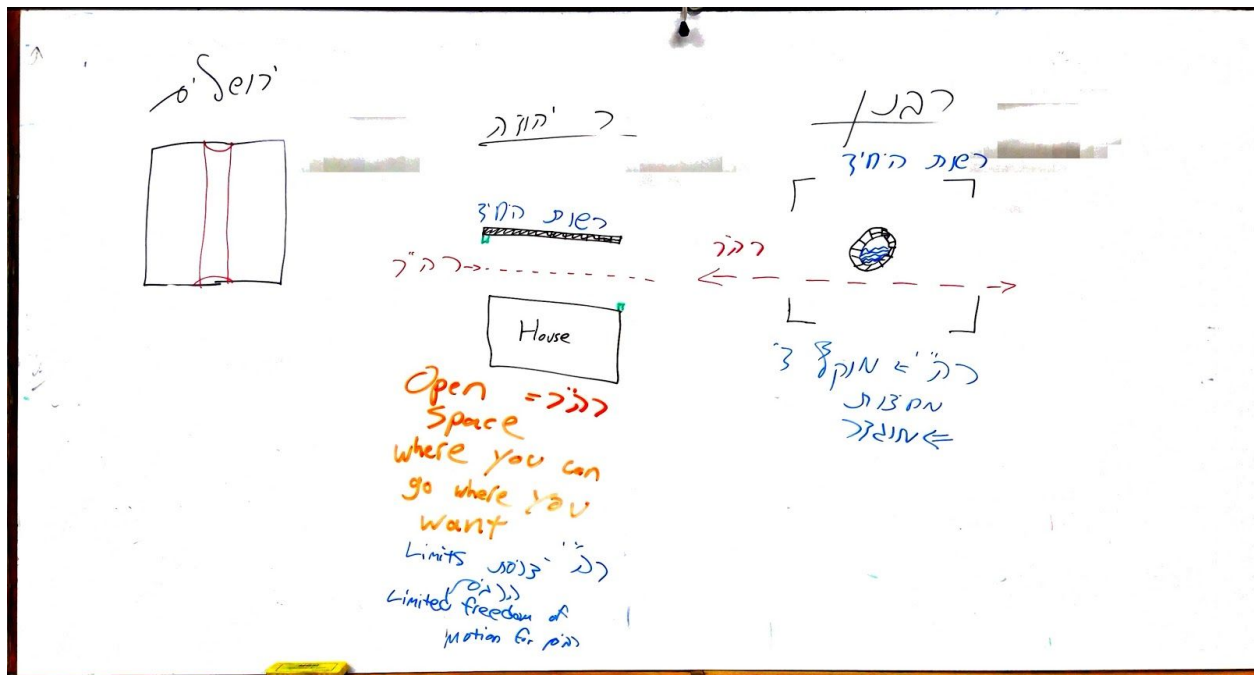 ירושלים
ר יהודה
רשות היחיד
רה"ר
House
Open = רה"ר
space
where you can
go where you
want
Limits
Limited freedom of
motion for רבים
רבנן
רשות היחיד
רה"ר
רה"י ⇐ מוקף ד'
מחצות
⇐ מוגדר